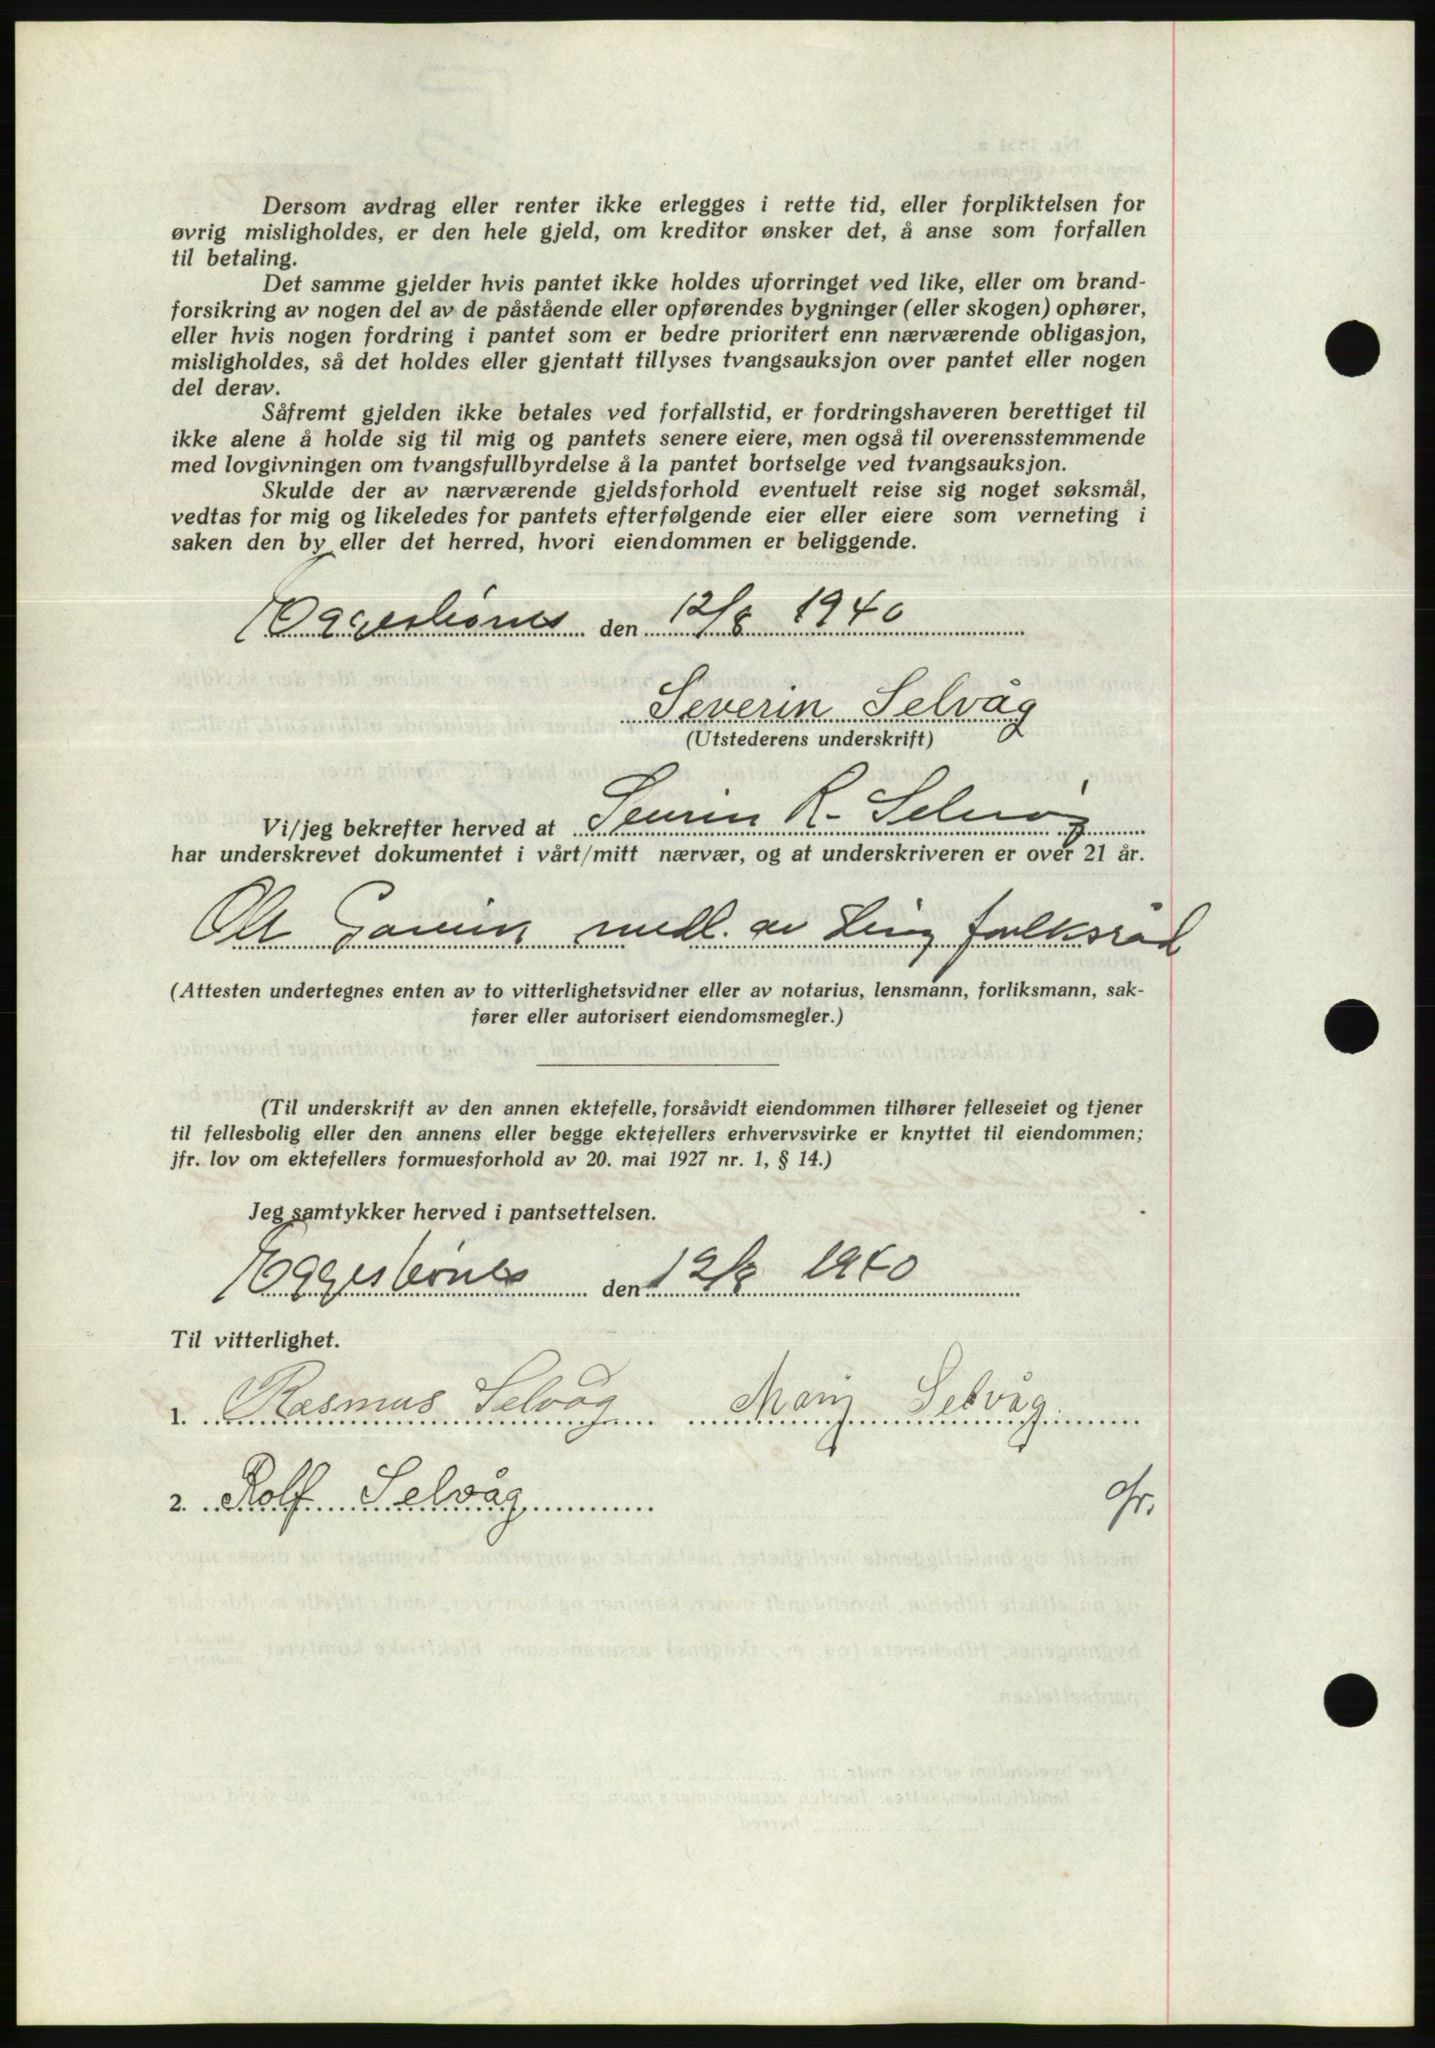 Dersom avdrag eller renter ikke erlegges i rette tid, eller forpliktelsen for
øvrig misligholdes, er den hele gjeld, om kreditor ønsker det, å anse som forfallen
til betaling.
Det samme gjelder hvis pantet ikke holdes uforringet ved like, eller om brand-
forsikring av nogen del av de påstående eller opførendes bygninger (eller skogen) ophører,
eller hvis nogen fordring i pantet som er bedre prioritert enn nærværende obligasjon,
misligholdes, så det holdes eller gjentatt tillyses tvangsauksjon over pantet eller nogen
del derav.
Såfremt gjelden ikke betales ved forfallstid, er fordringshaveren berettiget til
ikke alene å holde sig til mig og pantets senere eiere, men også til overensstemmende
med lovgivningen om tvangsfullbyrdelse å la pantet bortselge ved tvangsauksjon.
Skulde der av nærværende gjeldsforhold eventuelt reise sig noget søksmål,
vedtas for mig og likeledes for pantets efterfølgende eier eller eiere som verneting i
saken den by eller det herred, hvori eiendommen er beliggende.
Eggesbønes den 12/8 1940
Severin Selvåg
(Utstederens underskrift)
Vi/jeg bekrefter herved at Severin R. Selvåg
har underskrevet dokumentet i vårt/mitt nærvær, og at underskriveren er over 21 år.
medl. av forlksråd
(Attesten undertegnes enten av to vitterlighetsvidner eller av notarius, lensmann, forliksmann, sak-
fører eller autorisert eiendomsmegler.)
(Til underskrift av den annen ektefelle, forsåvidt eiendommen tilhører felleseiet og tjener
til fellesbolig eller den annens eller begge ektefellers erhvervsvirke er knyttet til eiendommen;
jfr. lov om ektefellers formuesforhold av 20. mai 1927 nr. 1, § 14.)
Jeg samtykker herved i pantsettelsen.
Eggesbønes den 12/8 1940
Til vitterlighet.
1. Rasmus Selvåg Marij Selvåg
2. Rolf Selvåg